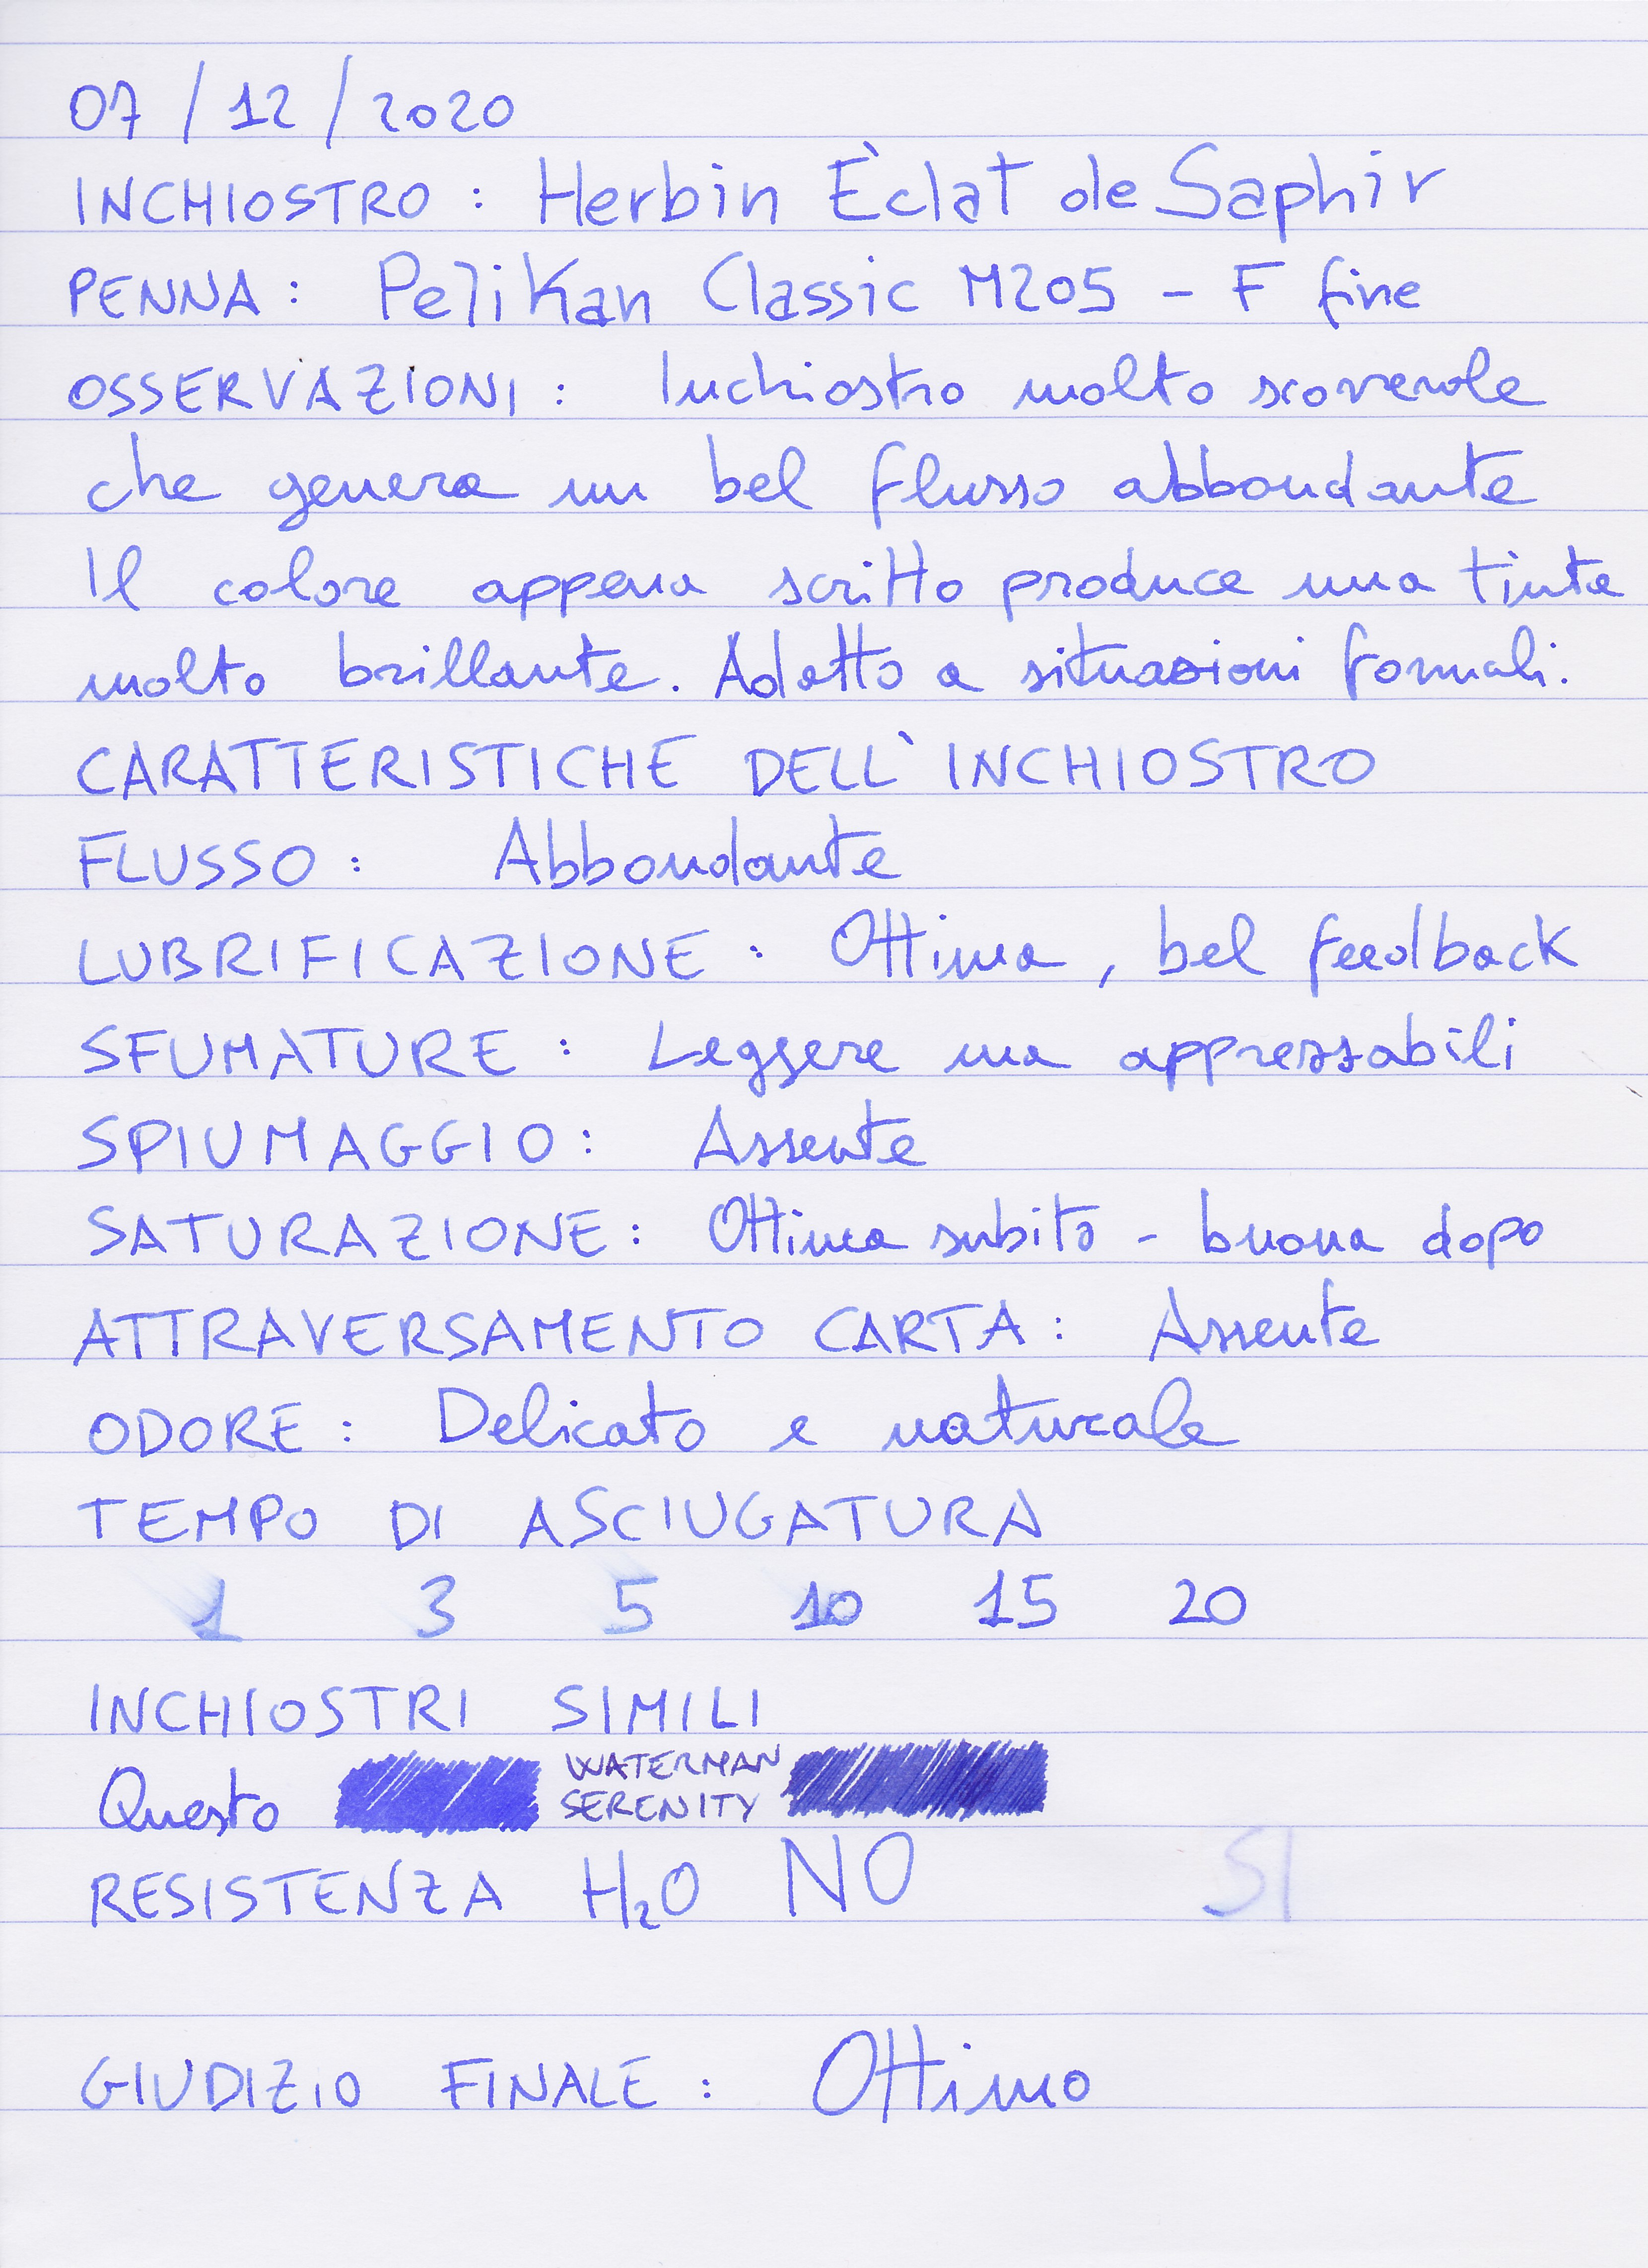 07/12/2020
INCHIOSTRO: Herbin Èclat de Saphir
PENNA: Pelikan Classic M205 - F fine
OSSERVAZIONI: Inchiostro molto scorrevole
che genera un bel flusso abbondante
Il colore appena scritto produce una tinta
molto brillante. Adatto a situazioni formali.
CARATTERISTICHE DELL'INCHIOSTRO
FLUSSO: Abbondante
LUBRIFICAZIONE: Ottima, bel feedback
SFUMATURE: Leggere ma apprezzabili
SPIUMAGGIO: Assente
SATURAZIONE: Ottima subito - buona dopo
ATTRAVERSAMENTO CARTA: Assente
ODORE: Delicato e naturale
TEMPO DI ASCIUGATURA
1 3 5 10 15 20
INCHIOSTRI SIMILI
Questo WATERMAN SERENITY
RESISTENZA H₂O NO SI
GIUDIZIO FINALE: Ottimo